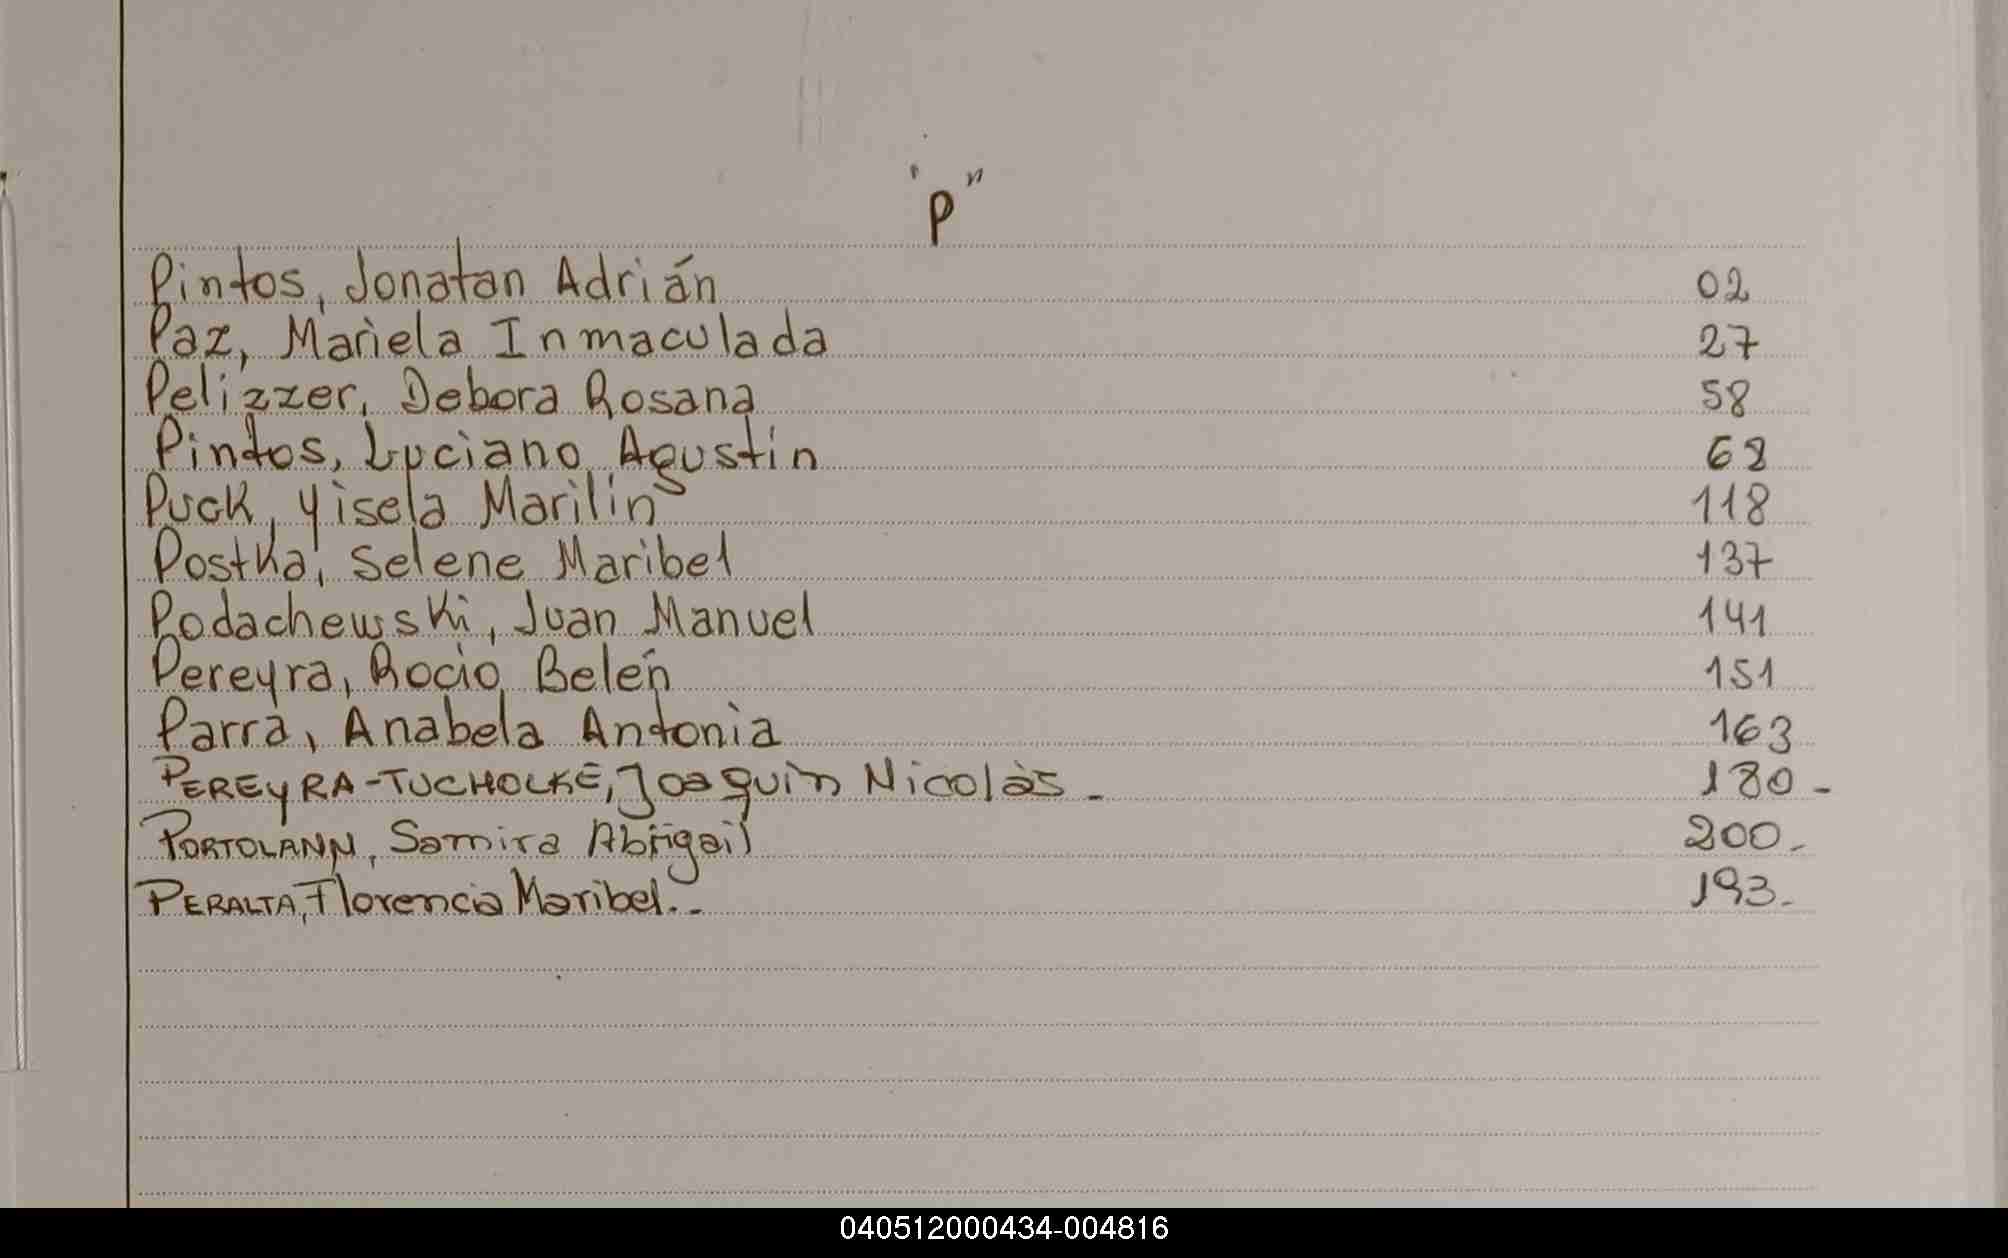 "P"
Pintos, Jonatan Adrián 02
Paz, Mariela Inmaculada 27
Pelizzer, Debora Rosana 58
Pintos, Luciano Agustín 68
Puck, Yisela Marilin 118
Postka, Selene Maribel 137
Podachewski, Juan Manuel 141
Pereyra, Rocio Belén 151
Parra, Anabela Antonia 163
PEREYRA-TUCHOLKE, Joaquin Nicolás - 180-
PORTOLANN, Samira Abrigail 200-
PERALTA, Florencia Maribel.- 193-
040512000434-004816